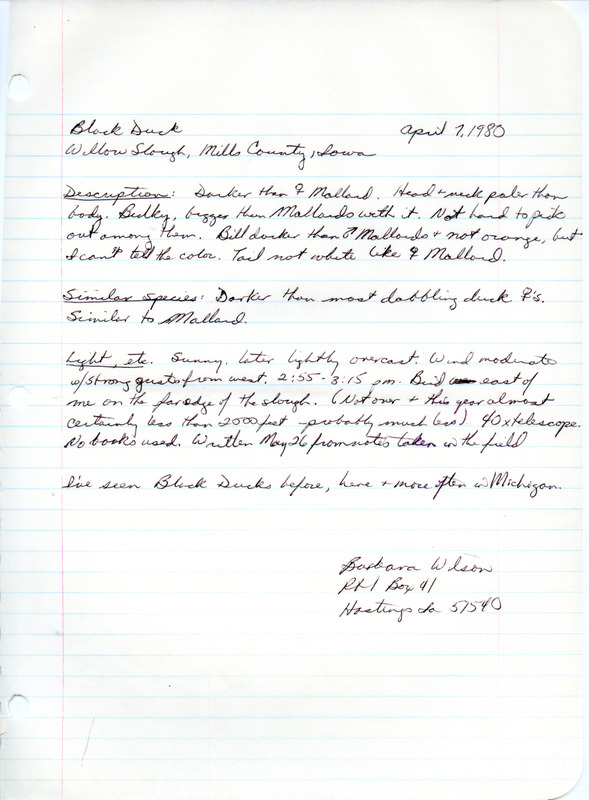 Black Duck April 7, 1980
Willow Slough, Mills County, Iowa
Description: Darker than ♀ Mallard. Head + neck paler than
body. Bulky, bigger than Mallards with it. Not hard to pick
out among them. Bill darker than ♂ Mallards + not orange, but
I can't tell the color. Tail not white like ♀ Mallard.
Similar species: Darker than most dabbling duck ♀'s.
Similar to Mallard.
Light, etc. Sunny, later lightly overcast. Wind moderate
w/strong gusts from west. 2:55-3:15 pm. Bird east of
me on the far edge of the slough. (Not over + this year almost
certainly less than 2000 feet - probably much less) 40x telescope.
No books used. Written May 26 from notes taken in the field
I've seen Black Ducks before, here + more often in Michigan.
Barbara Wilson
Rt 1 Box 41
Hastings Ia 51540